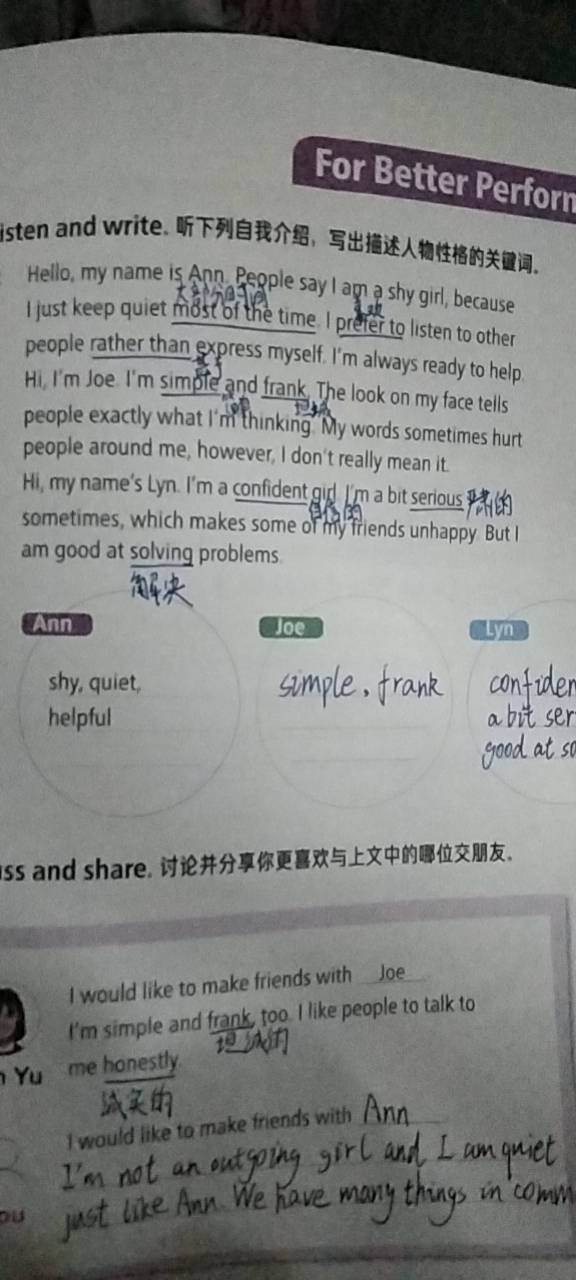 For Better Perform
isten and write. 听下列自我介绍，写出描述人物性格的关键词。
Hello, my name is Ann. People say I am a shy girl, because
大部分时间
I just keep quiet most of the time. I prefer to listen to other
people rather than express myself. I'm always ready to help.
Hi, I'm Joe. I'm simple and frank. The look on my face tells
坦诚
people exactly what I'm thinking. My words sometimes hurt
people around me, however, I don't really mean it.
Hi, my name's Lyn. I'm a confident girl. I'm a bit serious 严肃的
自信的
sometimes, which makes some of my friends unhappy. But I
am good at solving problems.
解决
Ann
Joe
Lyn
shy, quiet,
helpful
simple, frank
confiden
a bit ser
good at so
uss and share. 讨论并分享你更喜欢与上文中的哪位交朋友。
I would like to make friends with Joe
I'm simple and frank, too. I like people to talk to
坦诚的
Yu
me honestly
诚实的
I would like to make friends with Ann
I'm not an outgoing girl and I am quiet
ou
just like Ann. We have many things in comm